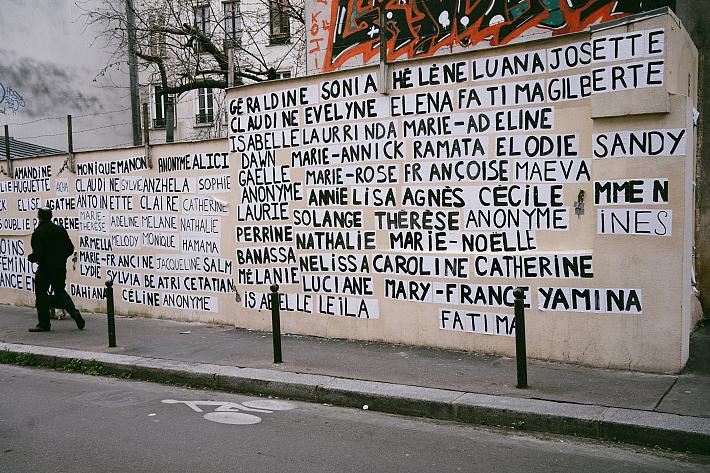 GÉRALDINE SONIA HÉLÈNE LUANA JOSETTE
CLAUDINE EVELYNE ELENA FATIMA GILBERTE
ISABELLE LAURRINDA MARIE-ADELINE
DAWN MARIE-ANNICK RAMATA ELODIE SANDY
GAËLLE MARIE-ROSE FRANÇOISE MAEVA
ANONYME ANNIE LISA AGNÈS CÉCILE MMEN
LAURIE SOLANGE THÉRÈSE ANONYME INES
PERRINE NATHALIE MARIE-NOËLLE
BANASSA NELISSA CAROLINE CATHERINE
MÉLANIE LUCIANE MARY-FRANCE YAMINA
ISABELLE LEILA FATIMA
AMANDINE MONIQUE MANON ANONYME ALICI
HUGUETTE AICHA CLAUDINE SYLVIE ANZHELA SOPHIE
ELISE AGATHE ANTOINETTE CLAIRE CATHERINE
OUBLIE MARIE-THÉRÈSE ADELINE MELANE NATHALIE
MOINS ARMELLA MELODY MONIQUE HAMAMA
FÉMINI MARIE-FRANCINE JACQUELINE SALM
LYDIE SYLVIA BEATRICE TATIAN
DAMIANA CÉLINE ANONYME